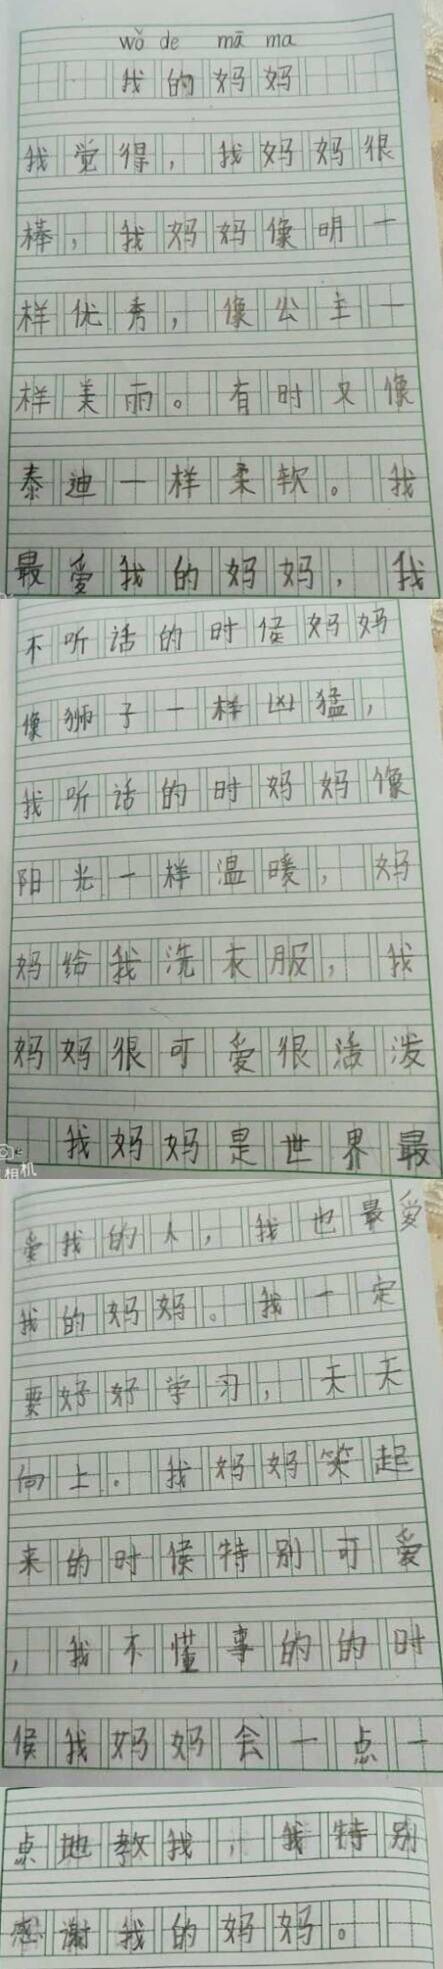 wǒ de mā ma
我的妈妈
我觉得，我妈妈很
棒，我妈妈像明一
样优秀，像公主一
样美丽。有时又像
泰迪一样柔软。我
最爱我的妈妈，我
不听话的时候妈妈
像狮子一样凶猛，
我听话的时妈妈像
阳光一样温暖，妈
妈给我洗衣服，我
妈妈很可爱很活泼
我妈妈是世界最
相机
爱我的人，我也最爱
我的妈妈。我一定
要好好学习，天天
向上。我妈妈笑起
来的时候特别可爱
，我不懂事的的时
候我妈妈会一点一
点地教我，我特别
感谢我的妈妈。